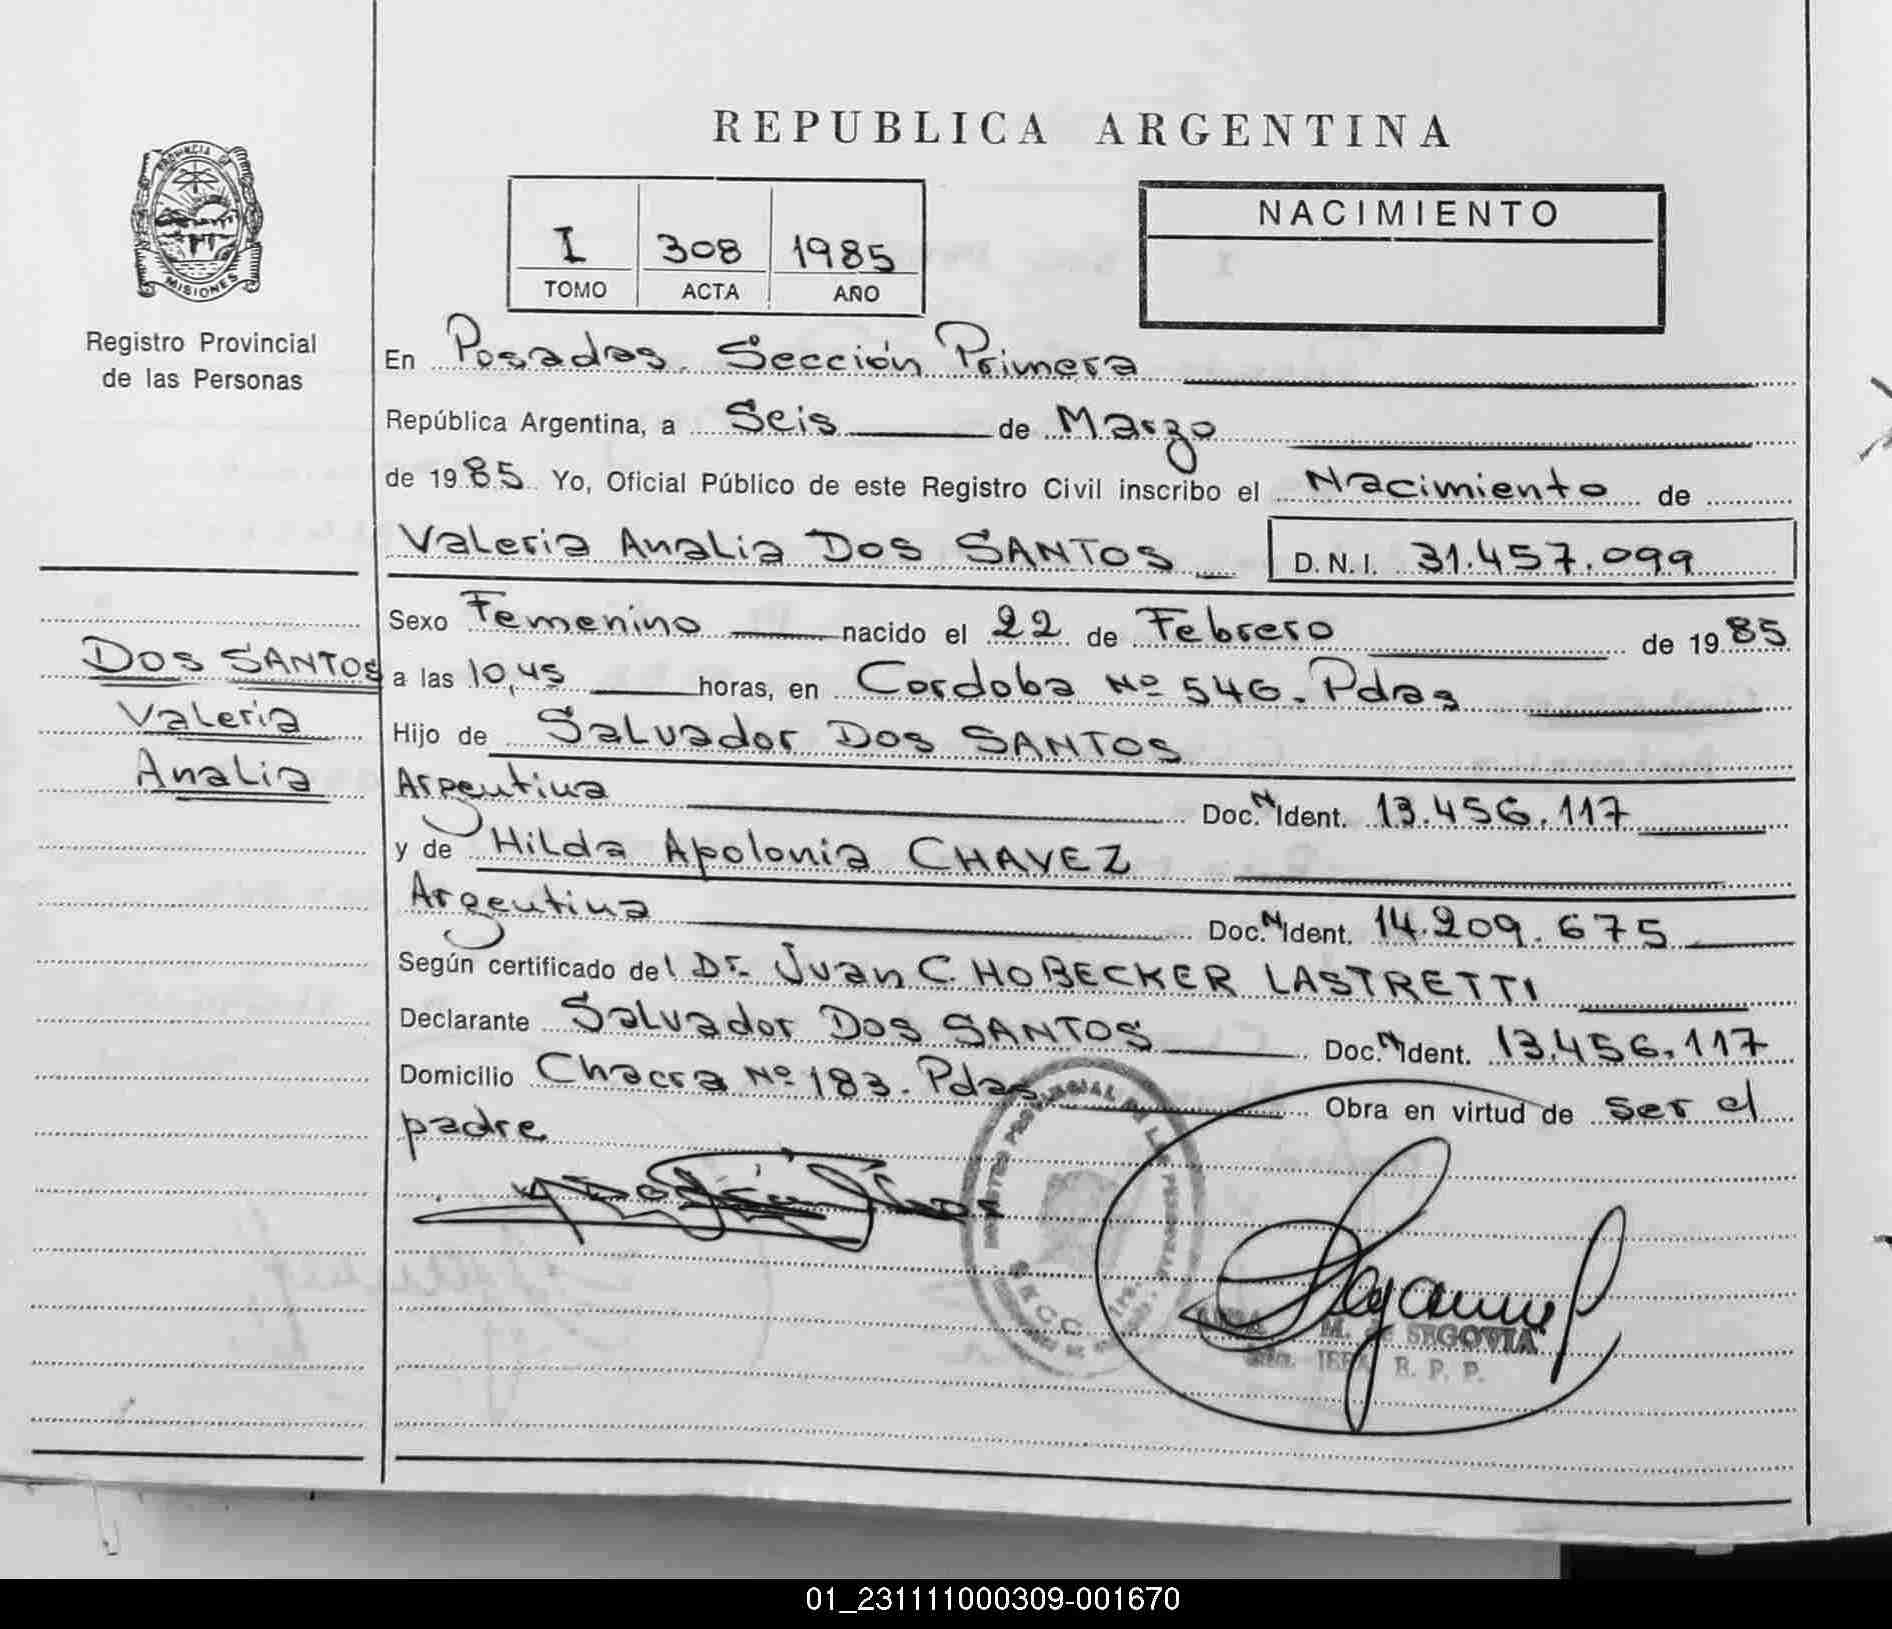 REPUBLICA ARGENTINA
PROVINCIA DE
MISIONES
Registro Provincial
de las Personas
I 308 1985
TOMO ACTA AÑO
NACIMIENTO
En Posadas. Sección Primera
República Argentina, a Seis de Marzo
de 1985 Yo, Oficial Público de este Registro Civil inscribo el Nacimiento de
Valeria Analia DOS SANTOS D.N.I. 31.457.099
Sexo Femenino nacido el 22 de Febrero de 1985
DOS SANTOS
Valeria
Analia
a las 10,45 horas, en Cordoba Nº 546. Pdas
Hijo de Salvador DOS SANTOS
Argentina Doc. N Ident. 13.456.117
y de Hilda Apolonia CHAVEZ
Argentina Doc. N Ident. 14.209.675
Según certificado del Dr. Juan C. HOBECKER LASTRETTI
Declarante Salvador DOS SANTOS Doc. N Ident. 13.456.117
Domicilio Chacra Nº 183. Pdas Obra en virtud de ser el
padre
REGISTRO PROVINCIAL DE LAS PERSONAS
M. de SEGOVIA
R. P. P.
01_231111000309-001670